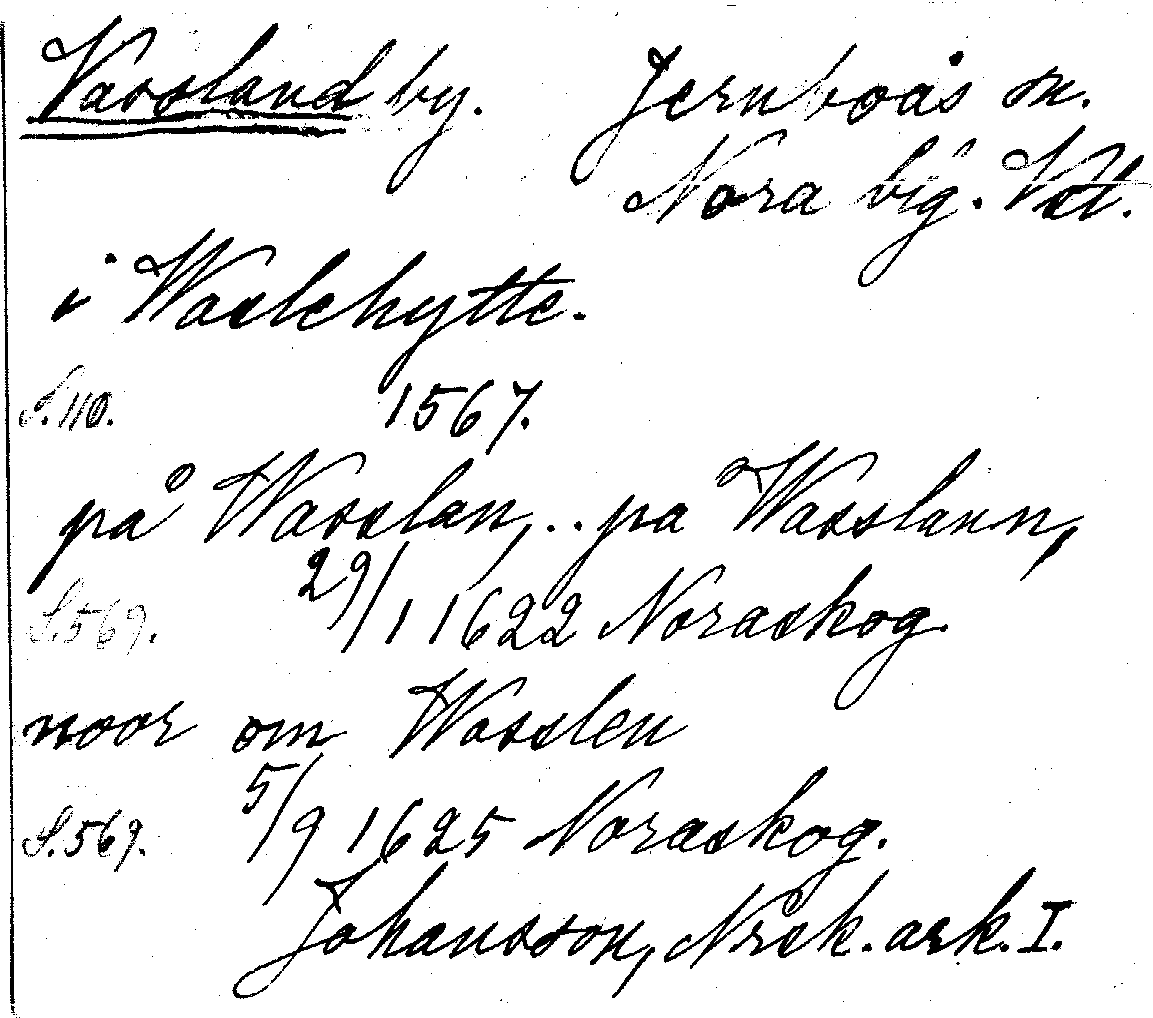 Vassland by. Jernboås sn.
Nora bg. Vstl.
i Waslehytte.
S. 110. 1567.
på Wasslan, .. på Wasslann,
S. 569. 29/1 1622 Noraskog.
noor om Wasslen
S. 569. 5/9 1625 Noraskog.
Johansson, Nrsk. ark. I.